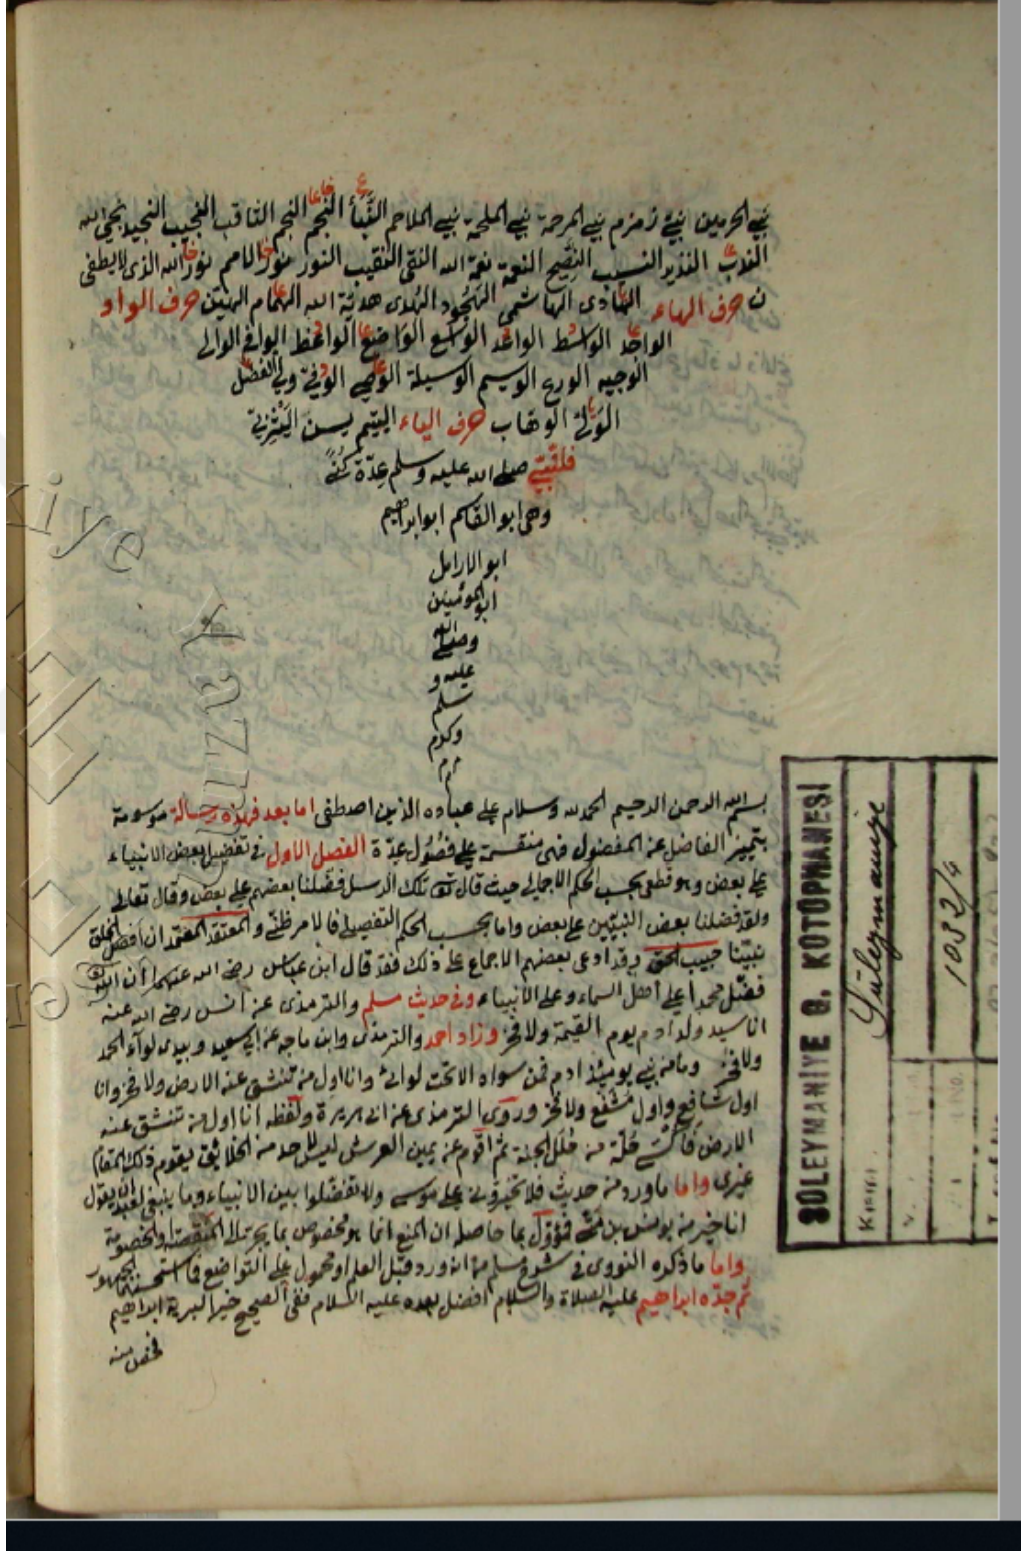 نبي الحرمين نبي زمزم نبي المرحمة نبي الملحمة نبي الملاحم النبأ النجم النجم الثاقب النجيب النجيد نجي الله
الندب النذير النسيب النصيح النعمة نعمة الله النقي النقيب النور نور الامم نور الله الذي لا يطفى
ن حرف الهاء الهادي الهاشمي الهجود الهدى هدية الله الهمام الهين حرف الواو
الواجد الواسط الواعد الواسع الواضع الواعظ الوافي الوالي
الوجيه الورع الوسيم الوسيلة الوصي الوفي ولي الفضل
الولي الوهاب حرف الياء اليتيم يسن اليثربي
صلى الله عليه وسلم عدة كنى
وهي ابو القاسم ابو ابراهيم
ابو الارامل
ابو المؤمنين
وصلى الله
عليه و
سلم
وكرم
م م
بسم الله الرحمن الرحيم الحمد لله وسلام على عباده الذين اصطفى اما بعد فهذه رسالة موسومة
بتمييز الفاضل عن المفضول فهي منقسمة على فصول عدة الفصل الاول في تفضيل بعض الانبياء
على بعض وهو قطعي بحسب الحكم الاجمالي حيث قال تع تلك الرسل فضلنا بعضهم على بعض وقال تعالى
ولقد فضلنا بعض النبيين على بعض واما بحسب الحكم التفصيلي فالامر ظني والمعتقد المعتمد ان افضل الخلق
نبينا حبيب الحق وقد ادعى بعضهم الاجماع على ذلك فقد قال ابن عباس رضي الله عنهما ان الله
فضل محمدا على اهل السماء وعلى الانبياء وفي حديث مسلم والترمذي عن انس رضي الله عنه
انا سيد ولد ادم يوم القيمة ولا فخر وزاد احمد والترمذي وابن ماجه عن ابي سعيد وبيدي لواء الحمد
ولا فخر وما من نبي يومئذ ادم فمن سواه الا تحت لوائي وانا اول من تنشق عنه الارض ولا فخر وانا
اول شافع واول مشفع ولا فخر وروى الترمذي عن ابي هريرة ولفظه انا اول من تنشق عنه
الارض فاكسى حلة من حلل الجنة ثم اقوم عن يمين العرش ليس لاحد من الخلائق يقوم ذلك المقام
غيري واما ما ورد من حديث فلا تخيروني على موسى ولا تفضلوا بين الانبياء وما ينبغي لعبد ان يقول
انا خير من يونس بن متى فمؤول بما حاصله ان المنع انما هو مخصوص بما يجر تلك المنقصة والخصومة
واما ما ذكره النووي في شرح مسلم من انه ورد قبل العلم او محمول على التواضع فما استحسنه الجمهور
ثم جده ابراهيم عليه الصلاة والسلام افضل بعده عليه السلام ففي الصحيح خير البرية ابراهيم
فخص منه
SÜLEYMANİYE G. KÜTÜPHANESİ
Süleymaniye
1032/4